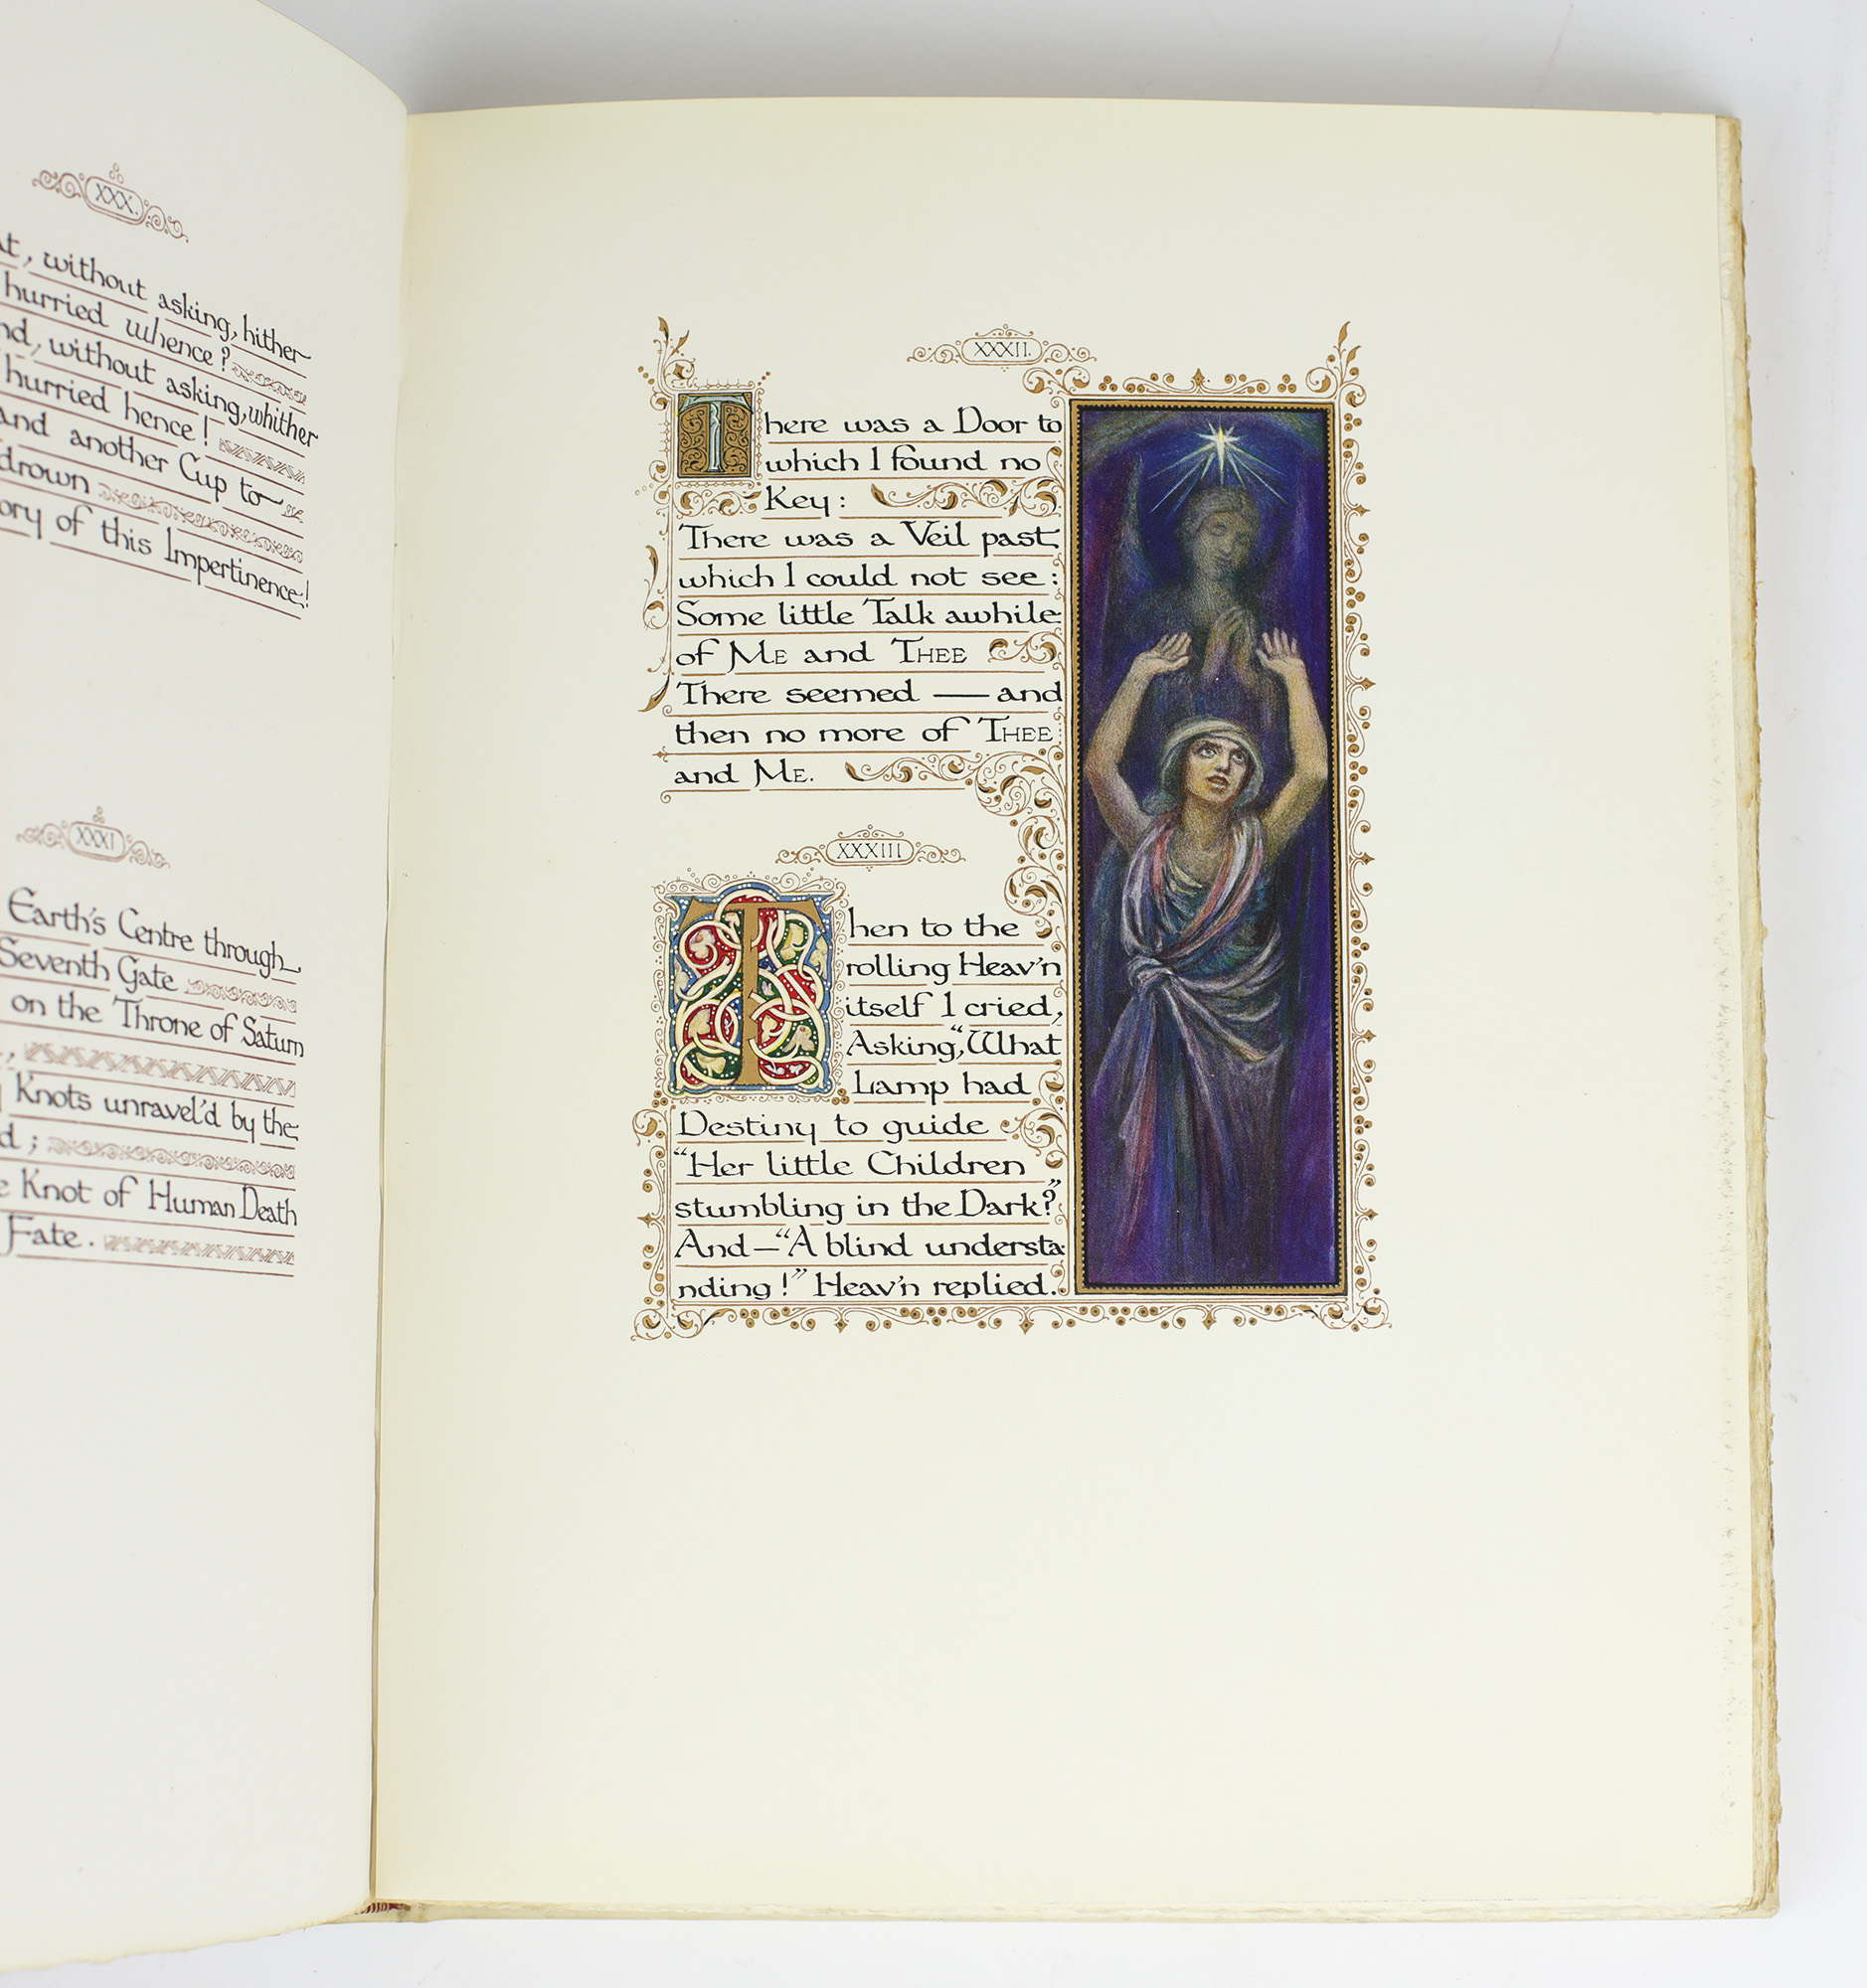 XXX.
, without asking, hither
hurried whence?
, without asking, whither
hurried hence!
and another Cup to
drown
of this Impertinence!
XXXI
Earth's Centre through
Seventh Gate
on the Throne of Saturn
,
Knots unravel'd by the
;
Knot of Human Death
Fate.
XXXII.
There was a Door to
which I found no
Key:
There was a Veil past
which I could not see:
Some little Talk awhile
of ME and THEE
There seemed — and
then no more of THEE
and ME.
XXXIII
Then to the
rolling Heav'n
itself I cried,
Asking, "What
Lamp had
Destiny to guide
"Her little Children
stumbling in the Dark?"
And—"A blind understa
nding!" Heav'n replied.